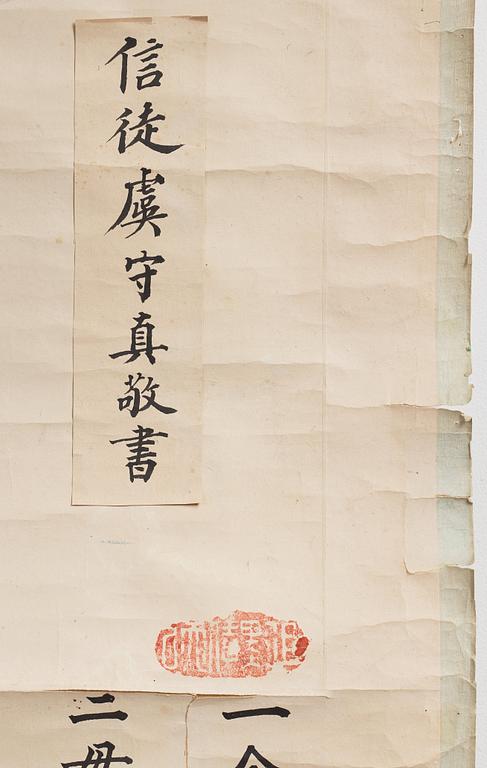 信徒虞守真敬書
一
二毋